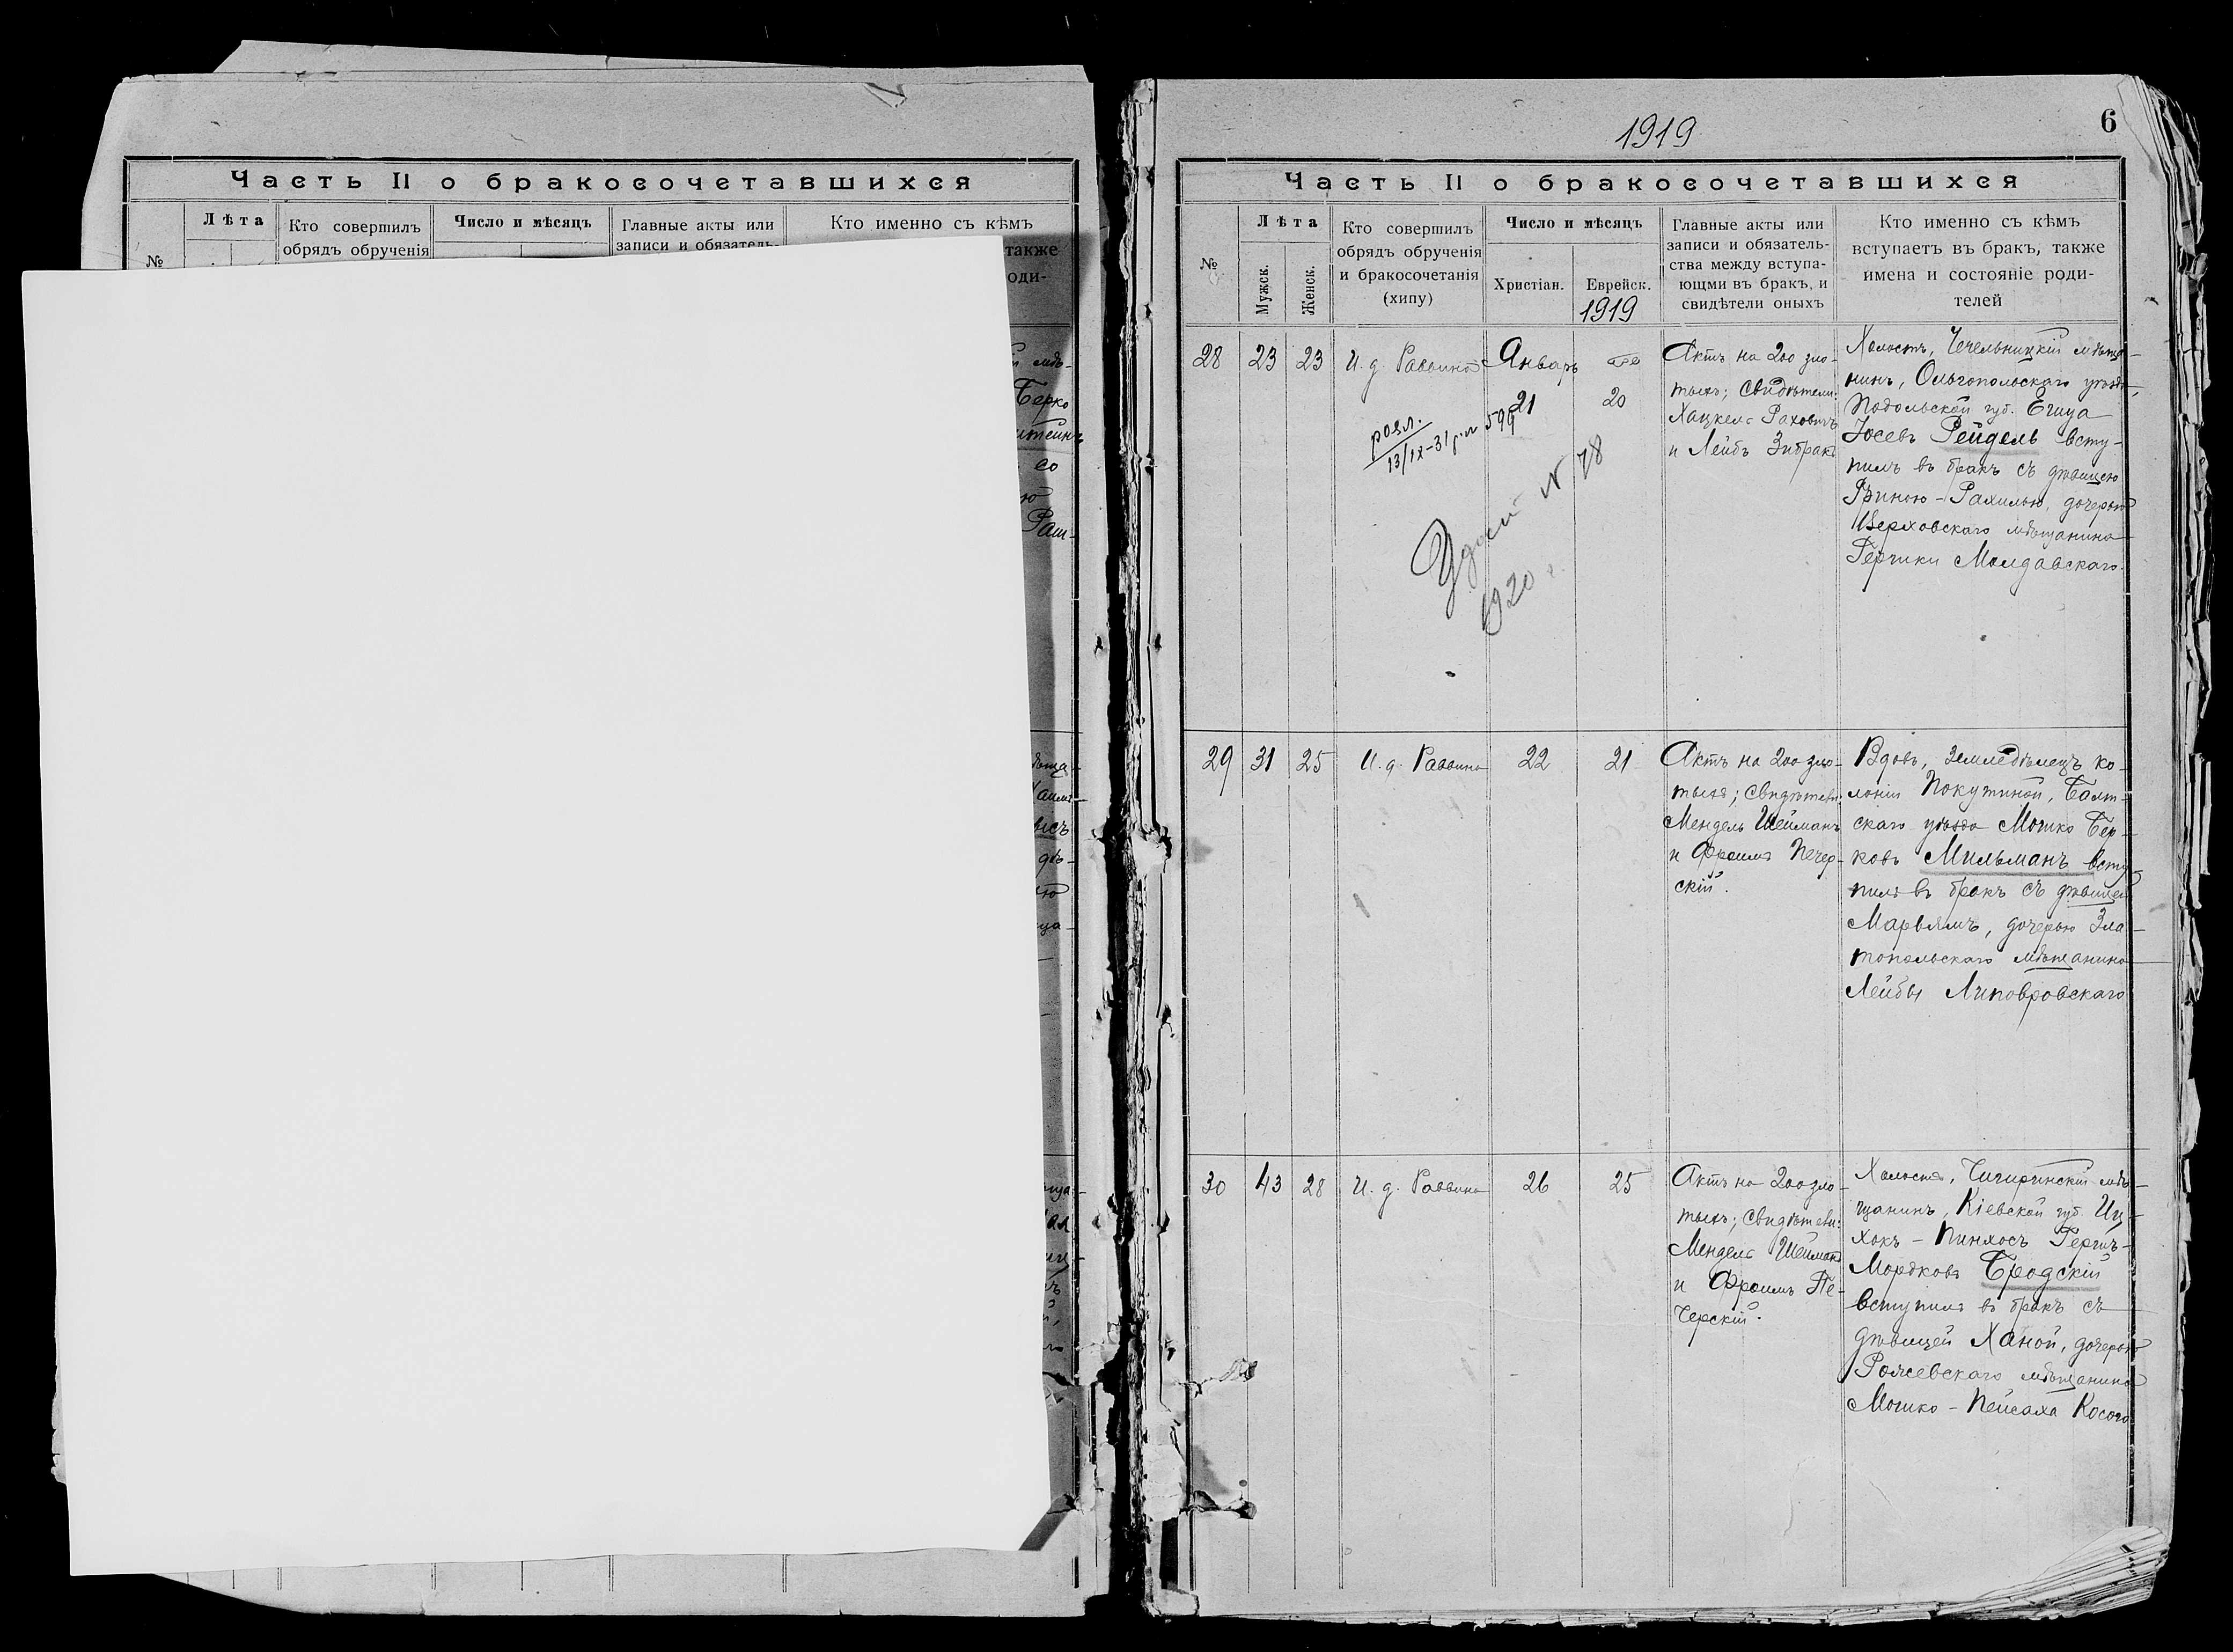 Часть II о бракосочетавшихся
Лѣта
Кто совершилъ
обрядъ обрученія
Число и мѣсяцъ
Главные акты или
записи и обязатель-
Кто именно съ кѣмъ
также
оди-
№
Берко
1919
6
Часть II о бракосочетавшихся
№
Лѣта
Мужск.
Женск.
Кто совершилъ
обрядъ обрученія
и бракосочетанія
(хипу)
Число и мѣсяцъ
Христіан.
Еврейск.
1919
Главные акты или
записи и обязатель-
ства между вступа-
ющми въ бракъ, и
свидѣтели оныхъ
Кто именно съ кѣмъ
вступаетъ въ бракъ, также
имена и состояніе роди-
телей
28
23
23
И. д. Раввина
Январь
21
20
розл.
13/IX-31 р. № 599
№ 78
1920 г.
Актъ на 200 зло-
тыхъ; свидѣтели:
Хацкель Раховичъ
и Лейбъ
Холостъ, Чечельницкій мѣща-
нинъ, Ольгопольскаго уѣзда,
Подольской губ. Егица
Іосевъ Рейдель всту-
пилъ въ бракъ съ дѣвицею
Рахилью, дочерью
Верховскаго мѣщанина
Гершки Молдавскаго.
29
31
25
И. д. Раввина
22
21
Актъ на 200 зло-
тыхъ; свидѣтели:
Мендель Шейманъ
и Фроимъ Печер-
скій.
Вдовъ, земледѣлецъ ко-
лоніи Покутиной, Балт-
скаго уѣзда Мошко Бер-
ковъ Мильманъ всту-
пилъ въ бракъ съ дѣвицей
Марьямъ, дочерью Зла-
топольскаго мѣщанина
Лейбы Липовровскаго
30
43
28
И. д. Раввина
26
25
Актъ на 200 зло-
тыхъ; свидѣтели:
Мендель Шейманъ
и Фроимъ Пе-
черскій.
Холостъ, Чигиринскій мѣ-
щанинъ, Кіевской губ. Иц-
хокъ - Пинхосъ Герш-
Мордковъ Бродскій
вступилъ въ бракъ съ
дѣвицей Ханой, дочерью
мѣщанина
Мошко - Пейсаха Косого